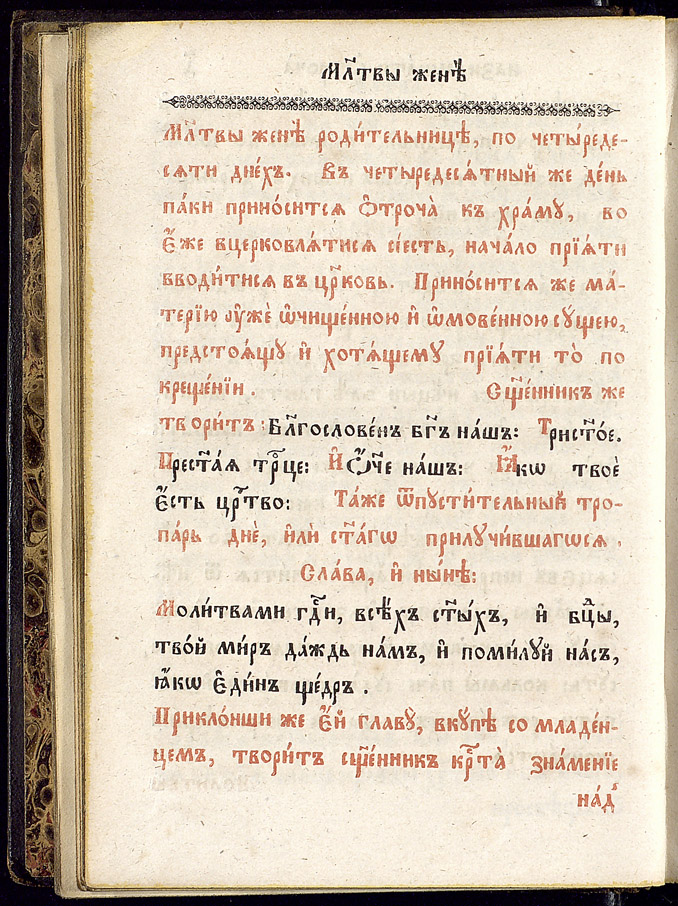 Мл҃твы женѣ̀
Мл҃твы женѣ̀ роди́тельницѣ, по четы́реде-
сѧти дне́хъ. Въ четыредесѧ́тный же де́нь
па́ки прино́ситсѧ ѻ҆троча̀ къ хра́му, во
є҆́же вцерковлѧ́тисѧ сїе́сть, нача́ло прїѧ́ти
вводи́тисѧ въ цр҃ковь. Прино́ситсѧ же ма́-
терїю ᲂу҆жѐ ѡ҆чище́нною и҆ ѡ҆мове́нною сꙋ́щею,
предстоѧ́щꙋ и҆ хотѧ́щемꙋ прїѧ́ти то̀ по
креще́нїи. Сщ҃е́нникъ же
твори́тъ: Бл҃гослове́нъ бг҃ъ на́шъ: Трист҃о́е.
Прест҃а́ѧ трⷪ҇це: И҆ Ѻ҆́ч҃е на́шъ: Ꙗ҆́кѡ твоѐ
є҆́сть црⷭ҇тво: Та́же ѿпꙋсти́тельный тро-
па́рь днѐ, и҆лѝ ст҃а́гѡ прилꙋчи́вшагѡсѧ.
Сла́ва, и҆ ны́нѣ:
Моли́твами гдⷭ҇и, всѣ́хъ ст҃ы́хъ, и҆ бцⷣы,
тво́й ми́ръ да́ждь на́мъ, и҆ поми́лꙋй на́съ,
ꙗ҆́кѡ є҆ди́нъ ще́дръ.
Прикло́нши же є҆́й главꙋ̀, вкꙋ́пѣ со младе́н-
цемъ, твори́тъ сщ҃е́нникъ крⷭ҇та̀ зна́менїе
на́дⸯ